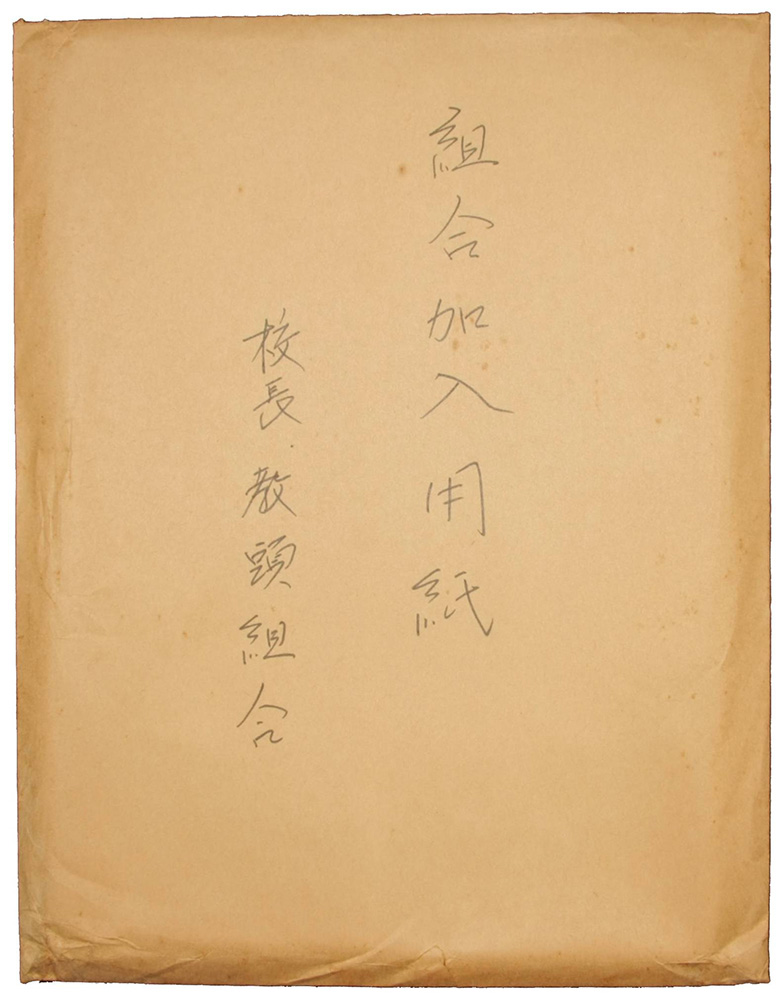 組合加入用紙
校長・教頭組合